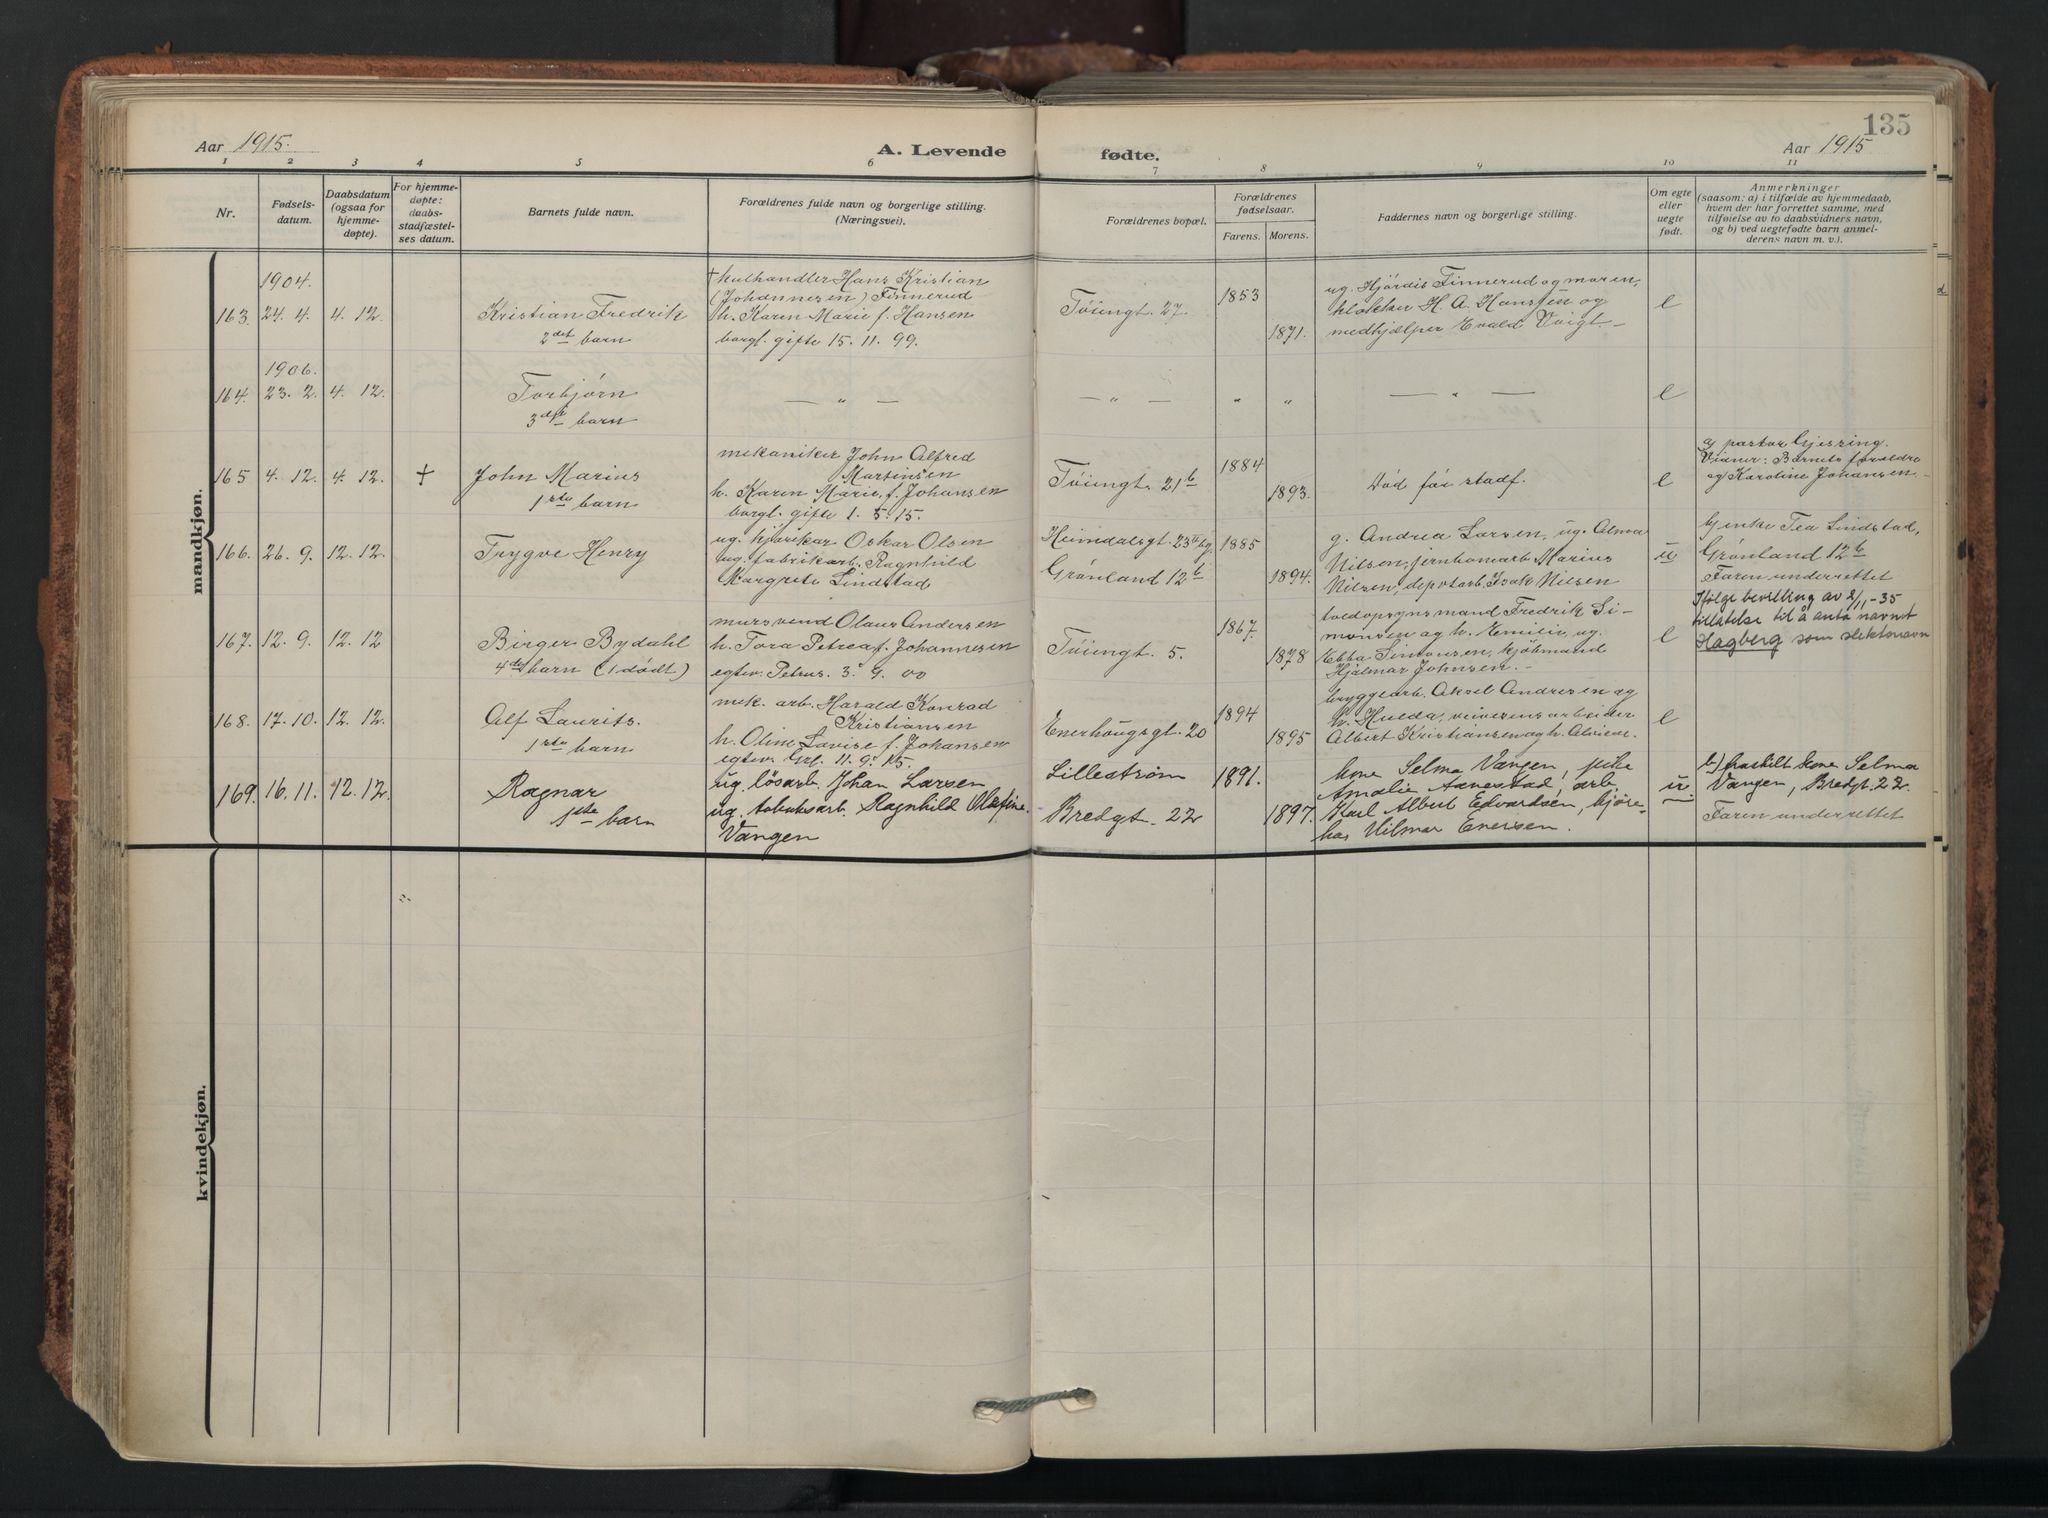 135
Aar 1915.
A. Levende fødte.
Aar 1915
1 2 3 4 5 6 7 8 9 10 11
Nr.
Fødsels-
datum.
Daabsdatum
(ogsaa for
hjemme-
døpte).
For hjemme-
døpte:
daabs-
stadfæstel-
ses datum.
Barnets fulde navn.
Forældrenes fulde navn og borgerlige stilling.
(Næringsvei).
Forældrenes bopæl.
Forældrenes
fødselsaar.
Farens. Morens.
Faddernes navn og borgerlige stilling.
Om egte
eller
uegte
født.
Anmerkninger
(saasom: a) i tilfælde av hjemmedaab,
hvem der har forrettet samme, med
tilføielse av to daabsvidners navn,
og b) ved uegtefødte barn anmel-
derens navn m. v.).
mandkjøn.
1904.
163. 24. 4. 4. 12.
Kristian Fredrik
2det barn
† kulhandler Hans Kristian
(Johannesen) Finnerud
h. Karen Marie f. Hansen
borgl. gifte 15. 11. 99.
Tøiengt. 27.
1853
1871.
ug. Hjørdis Finnerud og moren,
klokker H. A. Hansten og
medhjælper Evald Voigt
e
1906.
164. 23. 2. 4. 12.
Torbjørn
3die barn
— „ —
— „ —
„ „
— „ —
e
165 4. 12. 4. 12. †
John Marius
1ste barn
mekaniker John Alfred
Martinsen
h. Karen Marie f. Johansen
borgl. gifte 1. 5. 15.
Tøiengt. 21b
1884
1893.
Død før stadf.
e
a) pastor Gjessing.
Vidner: Barnets forældre
og Karoline Johansen
166. 26. 9. 12. 12.
Trygve Henry
ug. hjørikar Oskar Olsen
ug. fabrikarb. Ragnhild
Margrete Lindstad
Heimdalsgt. 23 II bg.
Grønland 12b
1885
1894.
g. Andrea Larsen, ug. Alma
Nilsen, jernbanearb Marius
Nilsen, depotarb. Isak Nilsen
u
b) enke Tea Lindstad,
Grønland 12b
Faren underrettet
167. 12. 9. 12. 12
Birger Bydahl
4de barn (1 dødt)
mursvend Olaus Andersen
h. Tora Petrea f. Johannesen
egtev. Petrus. 3. 9. 00
Tøiengt. 5.
1867
1878
toldopsynsmand Fredrik Si-
monsen og h. Emilie, ug.
Ebba Simonsen, kjøbmand
Hjalmar Johnsen.
e
Ifølge bevilling av 2/11-35
tillatelse til å anta navnet
Hagberg som slektsnavn
168. 17. 10. 12. 12.
Alf Laurits.
1ste barn
mek. arb. Harald Konrad
Kristiansen
h. Oline Lovise f. Johansen
egtev. Grl. 11. 9. 15.
Enerhougsgt. 20
1894
1895
bryggearb. Aksel Andresen og
h. Hulda, arbeider
Albert Kristiansen og h. Alvine.
e
169. 16. 11. 12. 12.
Ragnar
1ste barn
ug. løsarb. Johan Larsen
ug. tobaksarb. Ragnhild Olafine
Vangen
Lillestrøm
Bredgt. 22
1891.
1897.
kone Selma Vangen, pike
Amalie Aanestad, arb.
Karl Albert Edvardsen, kjøre-
kar Hilmar Enersen.
u
b) fraskilt kone Selma
Vangen, Bredgt. 22.
Faren underrettet
kvindekjøn.